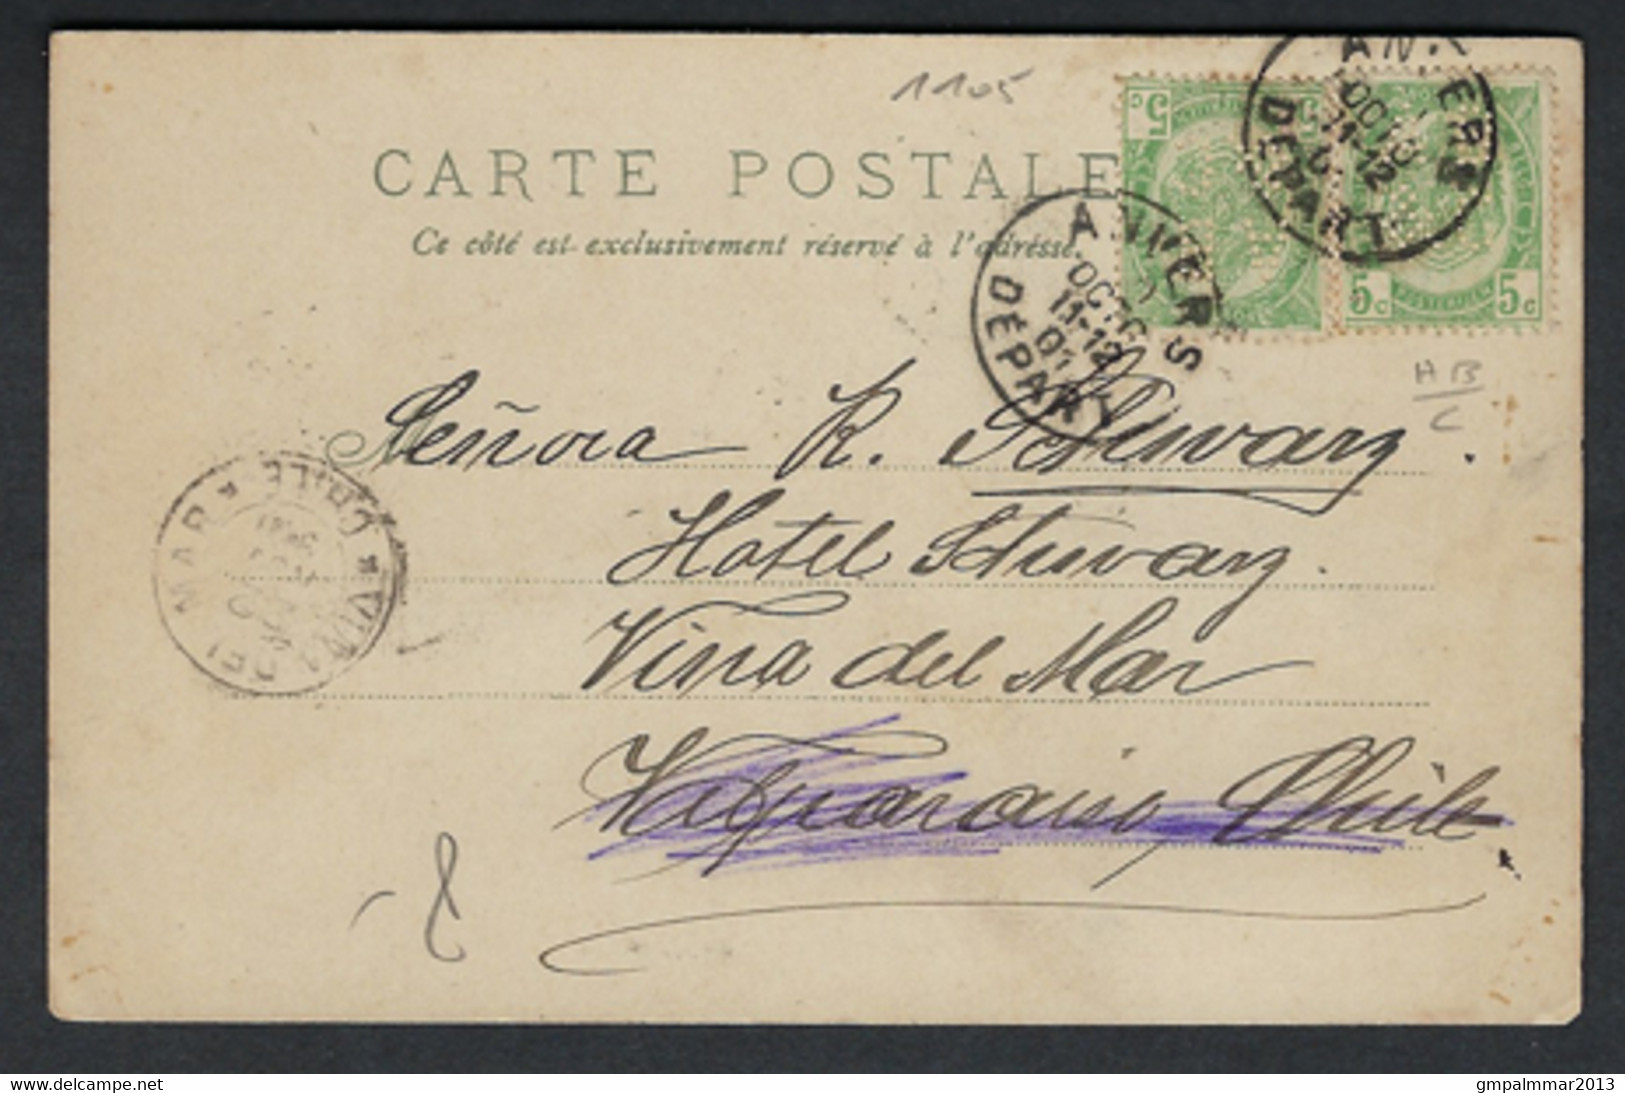 1105
CARTE POSTALE
Ce côté est exclusivement réservé à l'adresse.
5c
5c 5c
ANVERS
11-12
DÉPART
ANVERS
OCT
11-12
01
DÉPART
HB
C
Señora R. Schwarz.
Hotel Schwarz.
Viña del Mar
Valparaiso Chile
VIÑA DEL MAR * CHILE *
-8
www.delcampe.net
gmpalmmar2013